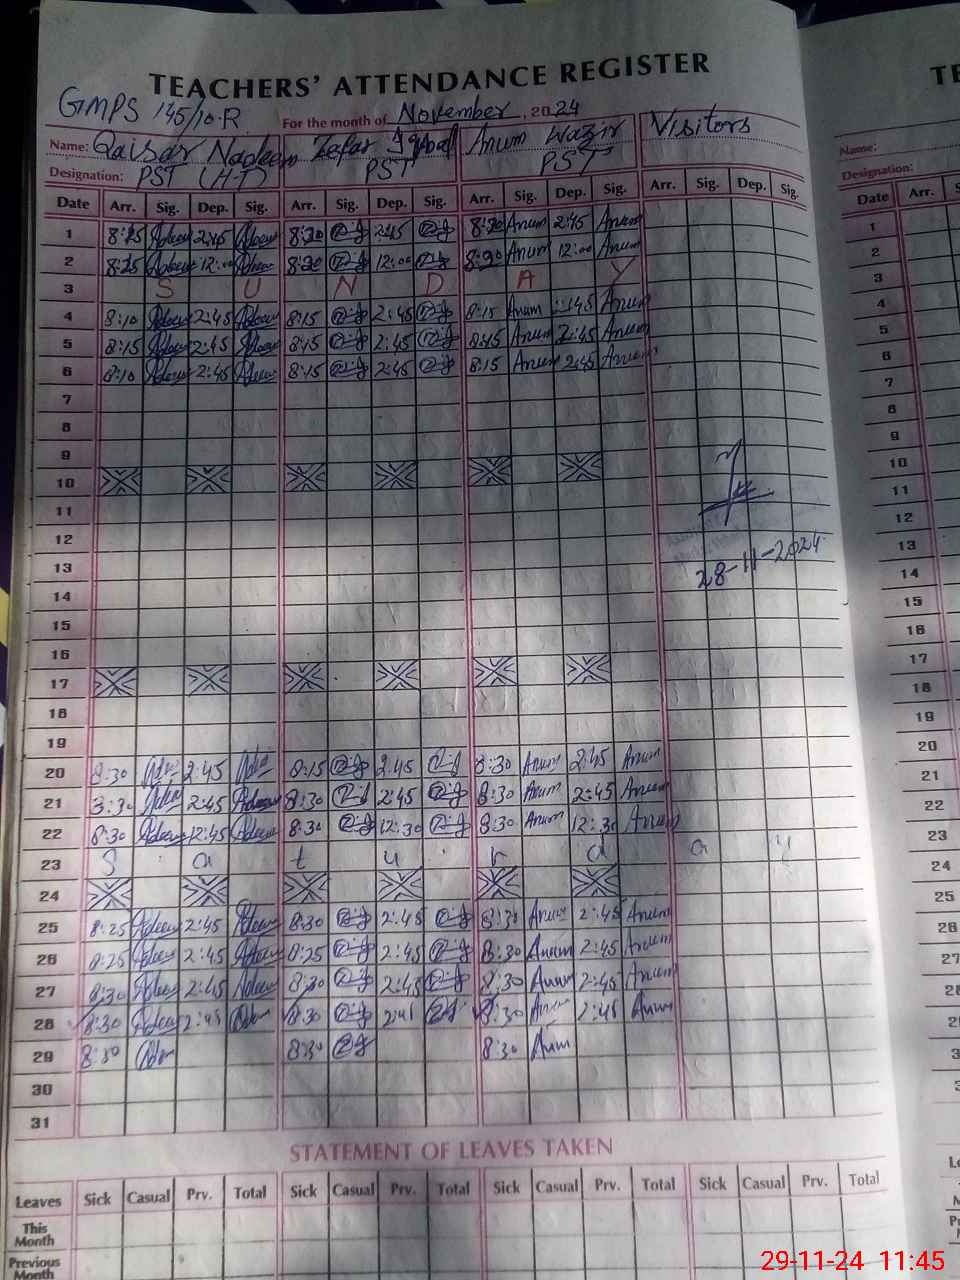 TEACHERS' ATTENDANCE REGISTER
GMPS 145/10-R For the month of November, 2024
Name: Qaisar Nadeem Zefar Iqbal Anum Wazir Visitors
Designation: PST (H-T) PST PST
Date Arr. Sig. Dep. Sig. Arr. Sig. Dep. Sig. Arr. Sig. Dep. Sig. Arr. Sig. Dep. Sig.
1 8:25 2:45 8:20 2:45 8:20 Anum 2:45 Anum
2 8:25 12:00 8:20 12:00 8:20 Anum 12:00 Anum
3 S U N D A Y
4 8:10 2:45 8:15 2:45 8:15 Anum 2:45 Anum
5 8:15 2:45 8:15 2:45 8:15 Anum 2:45 Anum
6 8:10 2:45 8:15 2:45 8:15 Anum 2:45 Anum
7
8
9
10
11
12
13
28-11-2024
14
15
16
17
18
19
20 8:30 2:45 8:15 2:45 8:30 Anum 2:45 Anum
21 8:30 2:45 8:30 2:45 8:30 Anum 2:45 Anum
22 8:30 12:45 8:30 12:30 8:30 Anum 12:30 Anum
23 S a t u r d a y
24
25 8:25 2:45 8:30 2:45 8:30 Anum 2:45 Anum
26 8:25 2:45 8:25 2:45 8:30 Anum 2:45 Anum
27 8:30 2:45 8:30 2:45 8:30 Anum 2:45 Anum
28 8:30 2:45 8:30 2:45 8:30 Anum 2:45 Anum
29 8:30 8:30 8:30 Anum
30
31
STATEMENT OF LEAVES TAKEN
Leaves Sick Casual Prv. Total Sick Casual Prv. Total Sick Casual Prv. Total Sick Casual Prv. Total
This Month
Previous Month
TE
Name:
Designation:
Date Arr.
1
2
3
4
5
6
7
8
9
10
11
12
13
14
15
16
17
18
19
20
21
22
23
24
25
26
27
29-11-24 11:45